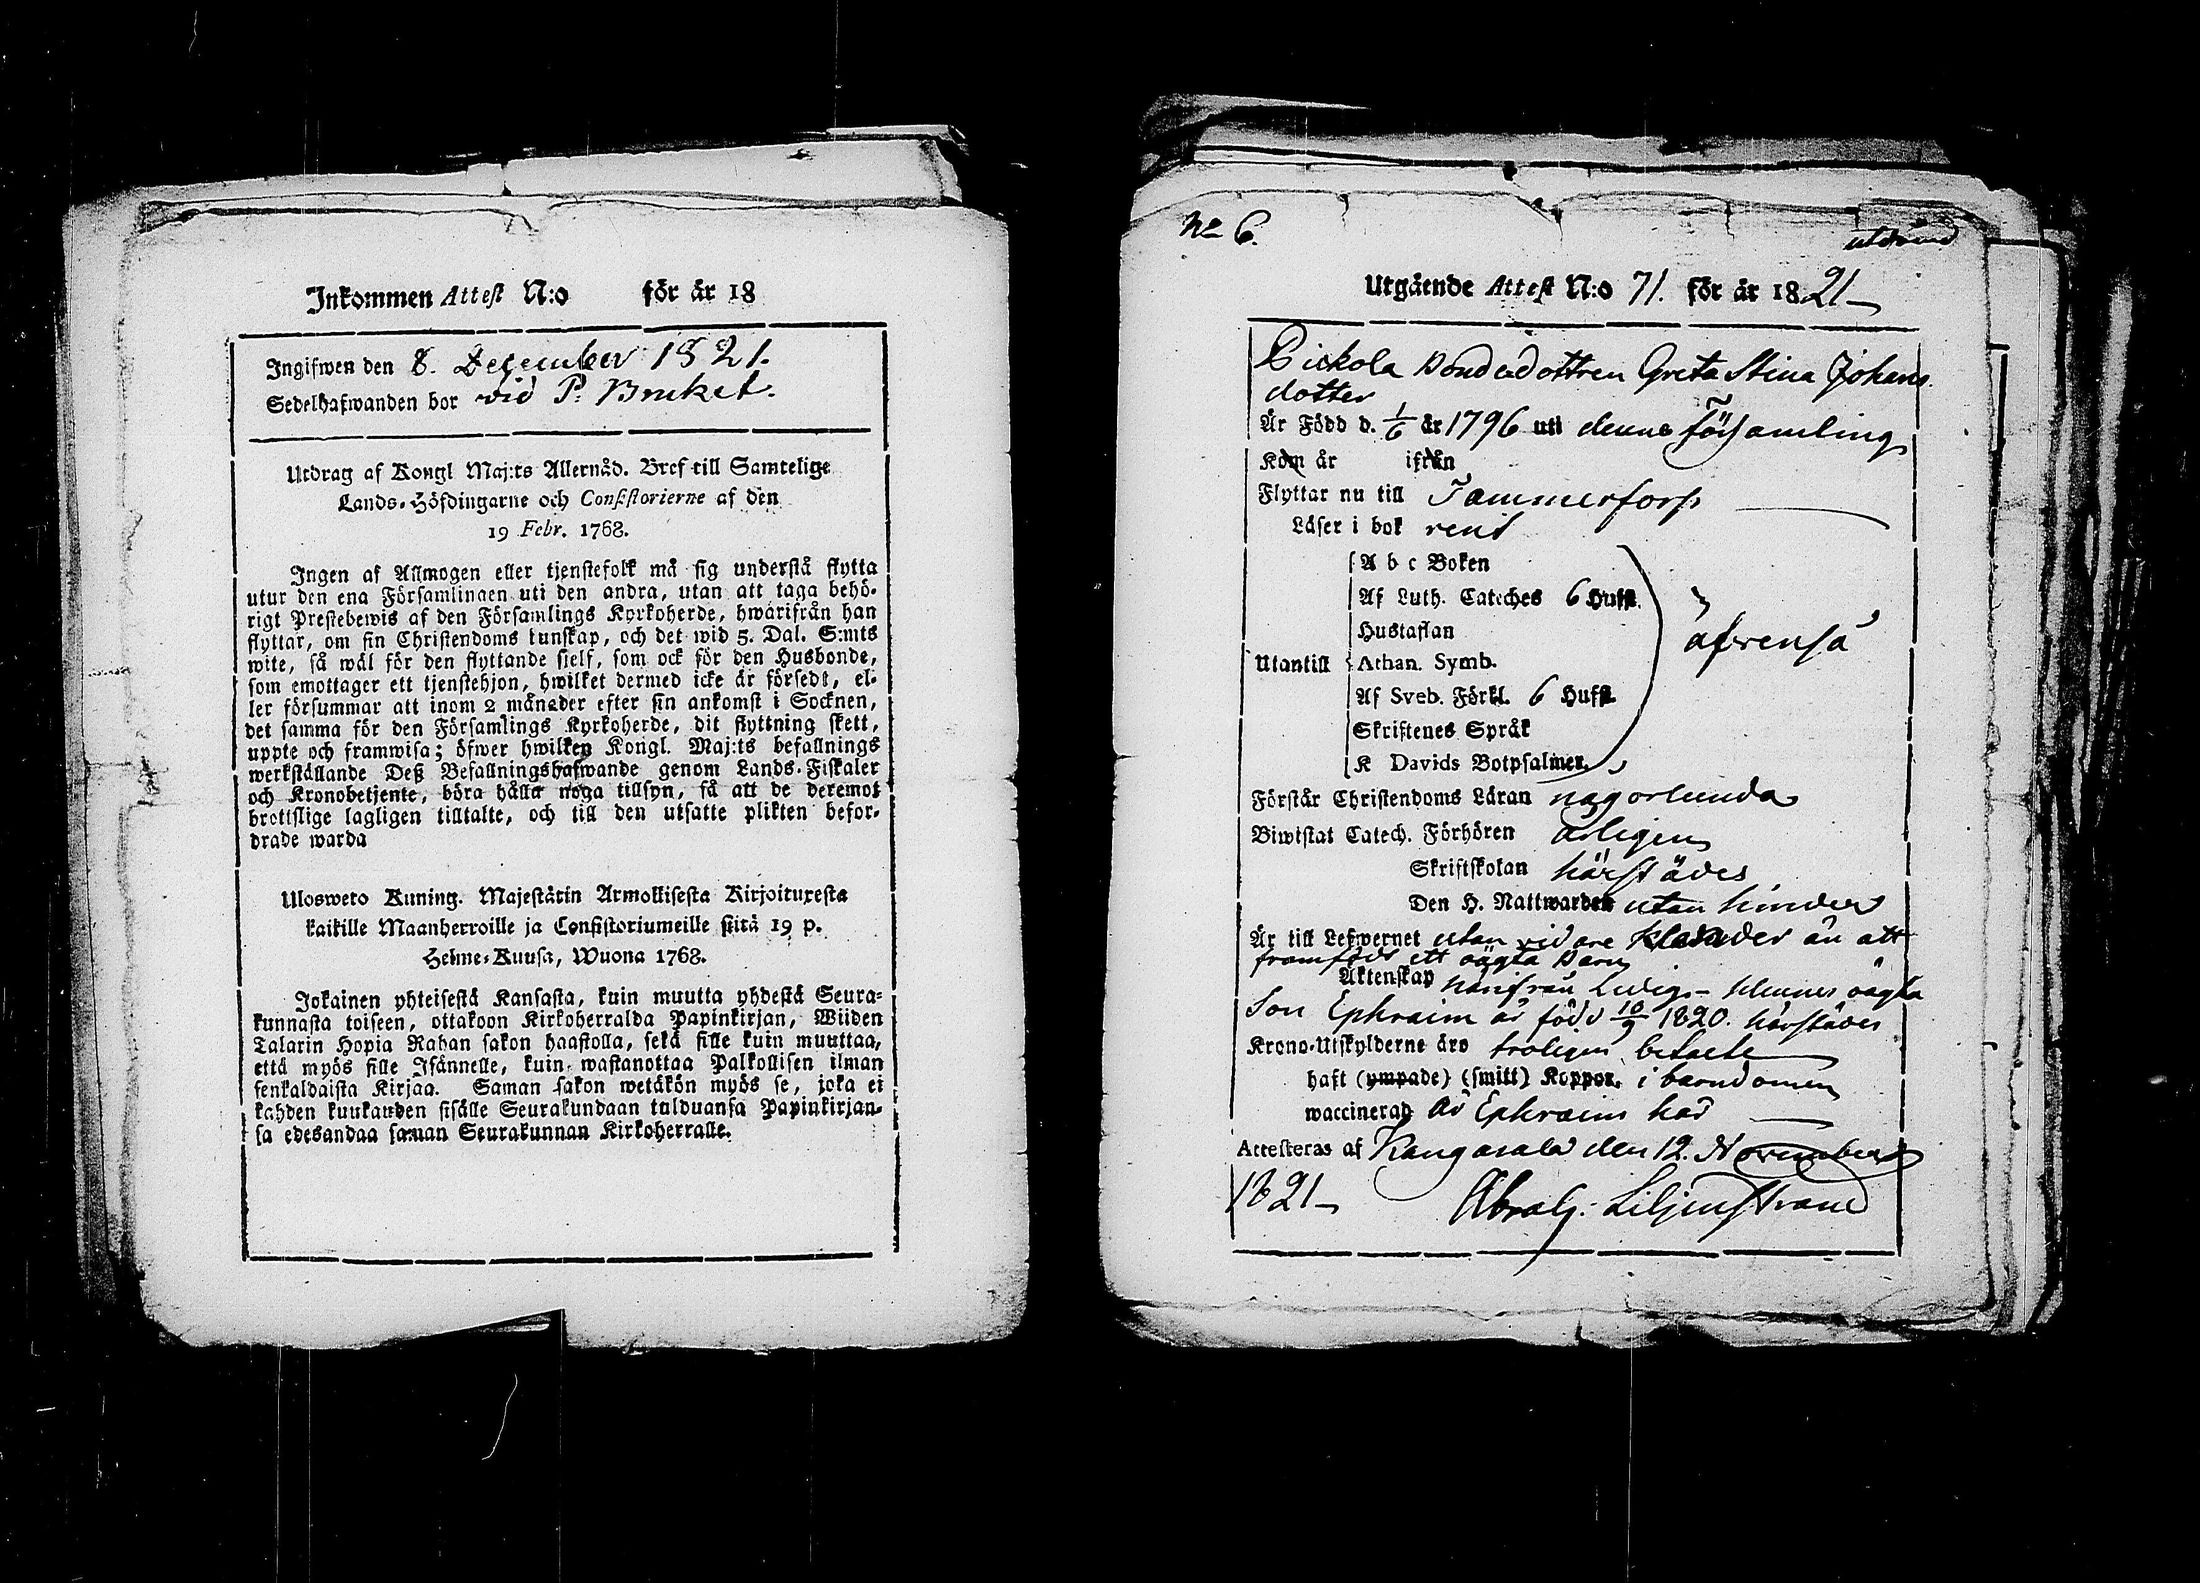 Inkommen Attest N:o för år 18
Ingifwen den 8. December 1821.
Sedelhafwanden bor vid P: Bruket.
Utdrag af Kongl Maj:ts Allernåd. Bref till Samtelige
Lands-Höfdingarne och Consistorierne af den
19 Febr. 1768.
Ingen af Allmogen eller tjenstefolk må sig understå flytta
utur den ena Församlingen uti den andra, utan att taga behö-
rigt Prestebewis af den Församlings Kyrkoherde, hwarifrån han
flyttar, om sin Christendoms kunskap, och det wid 5. Dal. S:mts
wite, så wäl för den flyttande sielf, som ock för den Husbonde,
som emottager ett tjenstehjon, hwilket dermed icke är försedt, el-
ler försummar att inom 2 månader efter sin ankomst i Socknen,
det samma för den Församlings Kyrkoherde, dit flyttning skett,
uppte och framwisa; öfwer hwilken Kongl. Maj:ts befallnings
werkställande Deß Befallningshafwande genom Lands-Fiskaler
och Kronobetjente, böra hålla noga tillsyn, få att de deremot
brottslige lagligen tilltalte, och till den utsatte plikten befor-
drade warda
Ulosweto Kuning. Majestätin Armollisesta Kirjoituxesta
kaikille Maanherroille ja Consistoriumeille siitä 19 p.
Helme-Kuusa, Wuona 1768.
Jokainen yhteisestä Kansasta, kuin muutta yhdestä Seura-
kunnasta toiseen, ottakoon Kirkoherralda Papinkirjan, Wiiden
Talarin Hopia Rahan sakon haastolla, sekä sille kuin muuttaa,
että myös sille Isännelle, kuin wastanottaa Palkollisen ilman
senkaldaista Kirjaa. Saman sakon wetäkön myös se, joka ei
kahden kuukauden sisälle Seurakundaan tulduansa Papinkirjan-
sa edesandaa saman Seurakunnan Kirkoherralle.
No 6.
Utgående Attest N:o 71. för år 1821
Bondedottren Greta Stina Johans
dotter
Är Född d. 1/6 år 1796 uti denna Församling
Kom år ifrån
Flyttar nu till Tammerfors
Läser i bok rent
A b c Boken
Af Luth. Cateches 6 Hufst.
Hustaflan
Utantill Athan. Symb.
Af Sveb. Förkl. 6 Hufst.
Skriftenes Språk
K Davids Botpsalmer.
äfvenså
Förstår Christendoms Läran någorlunda
Biwistat Catech. Förhören årligen
Skriftskolan härstädes
Den H. Nattwarden utan hinder
Är till Lefwernet utan vidare klander än att
framfödt ett oägta Barn
Äktenskap hinderfri Ledig – hennes oägta
Son Ephraim är född 10/9 1820. härstädes
Krono-Utskylderne äro troligen betalte
haft (ympade) (smitt) Koppor. i barndomen
waccinerad är Ephraim har
Attesteras af Kangasala den 12. November
1821
Abrah: Liljenstrand